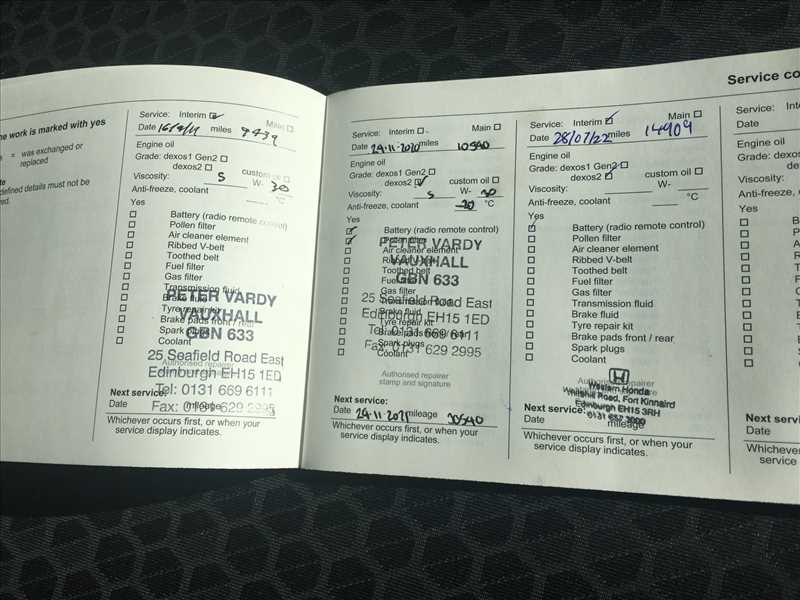 Service co
ne work is marked with yes
= was exchanged or
replaced
defined details must not be
ed.
Service: Interim Main
Date miles 9439
Engine oil
Grade: dexos1 Gen2
dexos2 custom oil
Viscosity: 5 W- 30
Anti-freeze, coolant °C
Yes
Battery (radio remote control)
Pollen filter
Air cleaner element
Ribbed V-belt
Toothed belt
Fuel filter
Gas filter
Transmission fluid
Brake fluid
Tyre repair kit
Brake pads front / rear
Spark plugs
Coolant
PETER VARDY
VAUXHALL
GBN 633
25 Seafield Road East
Edinburgh EH15 1ED
Tel: 0131 669 6111
Fax: 0131 629 2995
Next service:
Date mileage
Whichever occurs first, or when your
service display indicates.
Service: Interim Main
Date 24.11.2020 miles 10540
Engine oil
Grade: dexos1 Gen2
dexos2 custom oil
Viscosity: 5 W- 30
Anti-freeze, coolant -20 °C
Yes
Battery (radio remote control)
Pollen filter
Air cleaner element
Ribbed V-belt
Toothed belt
Fuel filter
Gas filter
Transmission fluid
Brake fluid
Tyre repair kit
Brake pads front / rear
Spark plugs
Coolant
PETER VARDY
VAUXHALL
GBN 633
25 Seafield Road East
Edinburgh EH15 1ED
Tel: 0131 669 6111
Fax: 0131 629 2995
Authorised repairer
stamp and signature
Next service:
Date 24.11.2021 mileage 20540
Whichever occurs first, or when your
service display indicates.
Service: Interim Main
Date 28/07/22 miles 14909
Engine oil
Grade: dexos1 Gen2
dexos2 custom oil
Viscosity: W-
Anti-freeze, coolant °C
Yes
Battery (radio remote control)
Pollen filter
Air cleaner element
Ribbed V-belt
Toothed belt
Fuel filter
Gas filter
Transmission fluid
Brake fluid
Tyre repair kit
Brake pads front / rear
Spark plugs
Coolant
Authorised repairer
Western Honda
Road, Fort Kinnaird
Edinburgh EH15 3RH
0131 657 3000
Next service:
Date mileage
Whichever occurs first, or when your
service display indicates.
Service: Int
Date
Engine oil
Grade: dexos
dexos
Viscosity:
Anti-freeze,
Yes
Next servi
Date
Whichever
service